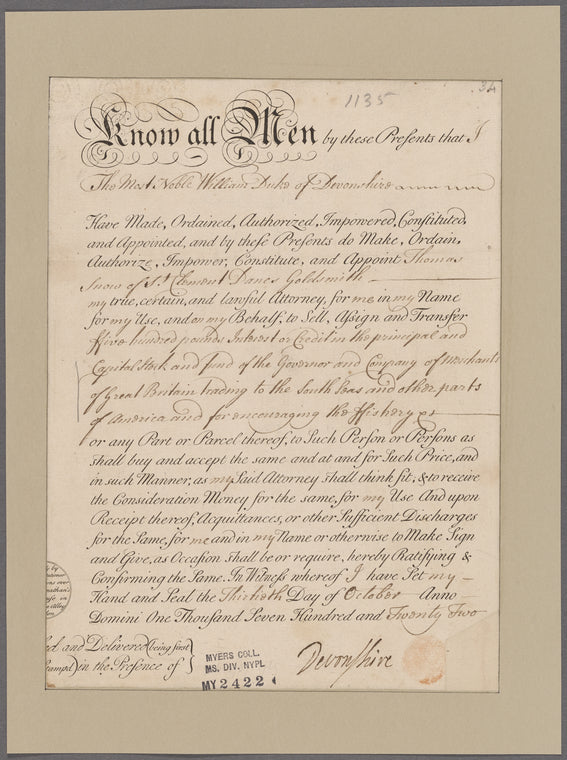 1135
34
Know all Men by these Presents that I
The Most Noble William Duke of Devonshire
Have Made, Ordained, Authorized, Impowered, Constituted,
and Appointed, and by these Presents do Make, Ordain,
Authorize, Impower, Constitute, and Appoint Thomas
Snow of St Clement Danes Goldsmith
my true, certain, and lawful Attorney, for me in my Name
for my Use, and on my Behalf, to Sell, Assign and Transfer
ffive hundred pounds Interest or Credit in the principal and
Capital Stock and fund of the Governor and Company of Merchants
of Great Britain trading to the South Seas and other parts
of America and for encouraging the ffishery
or any Part or Parcel thereof, to Such Person or Persons as
shall buy and accept the same and at and for Such Price, and
in such Manner, as my Said Attorney shall think fit, & to receive
the Consideration Money for the same, for my Use And upon
Receipt thereof, Acquittances, or other Sufficient Discharges
for the Same, for me and in my Name or otherwise to Make Sign
and Give, as Occasion shall be or require, hereby Ratifying &
Confirming the Same. In Witness whereof I have Set my
Hand and Seal the Thirtieth Day of October Anno
Domini One Thousand Seven Hundred and Twenty Two
ed and Delivered (being first
tampd) in the Presence of
Devonshire
MYERS COLL.
MS. DIV. NYPL
MY 2422